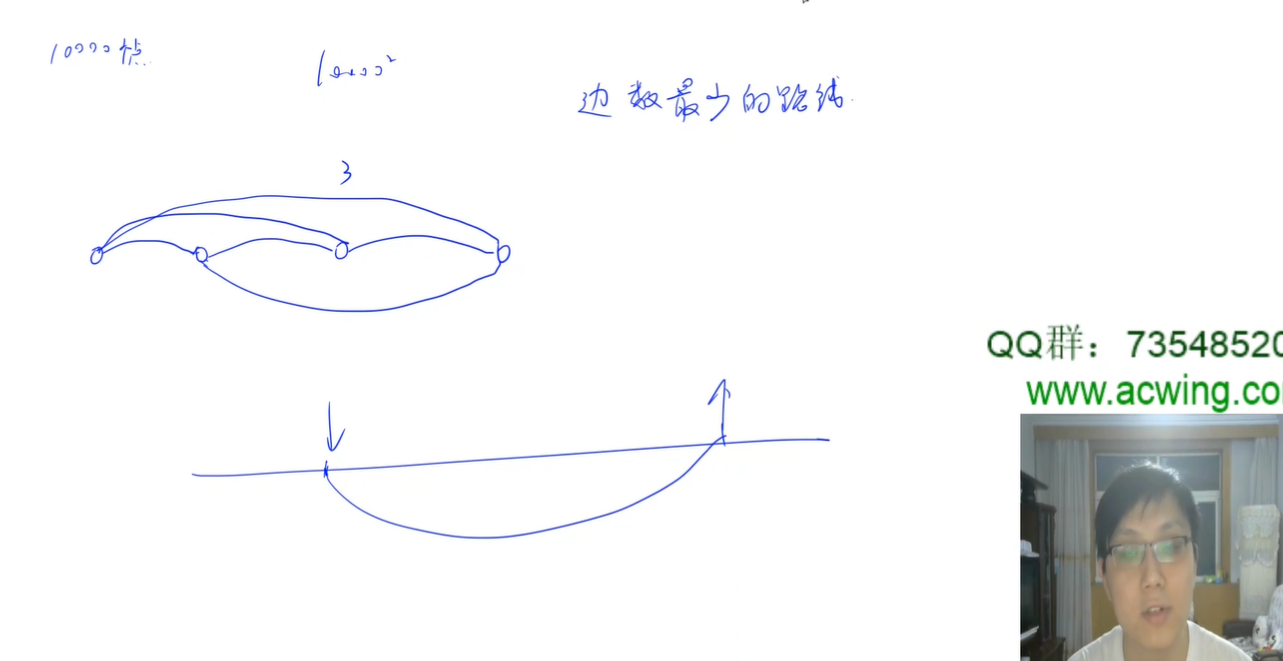 10000个点
10000²
边数最少的路线
3
QQ群：73548520
www.acwing.co